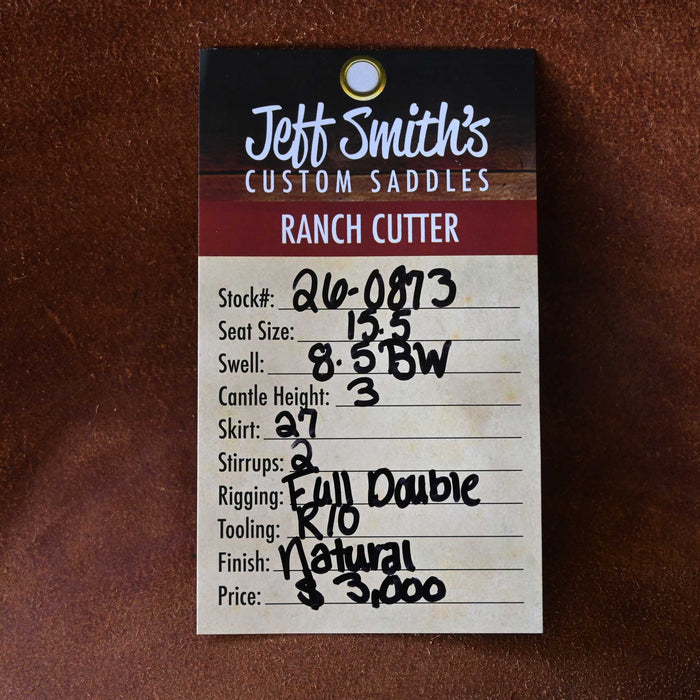 Jeff Smith's
CUSTOM SADDLES
RANCH CUTTER
Stock#: 26-0873
Seat Size: 15.5
Swell: 8.5 BW
Cantle Height: 3
Skirt: 27
Stirrups: 2
Rigging: Full Double
Tooling: R/O
Finish: Natural
Price: $3,000